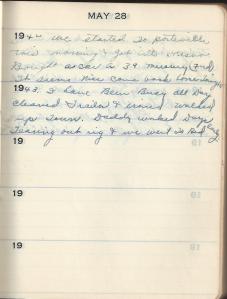 MAY 28
1942 We Started to Porterville
this morning & got into
Bought a car a 39 Mercury (Ford)
It seems nice came back
1943. I have Been Busy all Day
cleaned Trailer & ironed walked
up Town. Daddy worked Days
Tearing out rig & we went to Bed Early
19
19
19